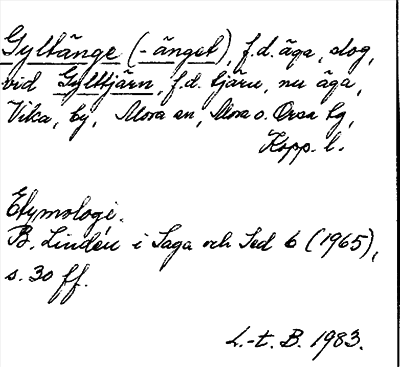 Gyltänge (-änget), f.d. äga, slog,
vid Gylltjärn, f.d. tjärn, nu äga,
Vika, by, Mora sn, Mora o. Orsa tg,
Kopp. l.
Etymologi.
B. Lindén i Saga och Sed 6 (1965),
s. 30 ff.
L.-t. B. 1983.